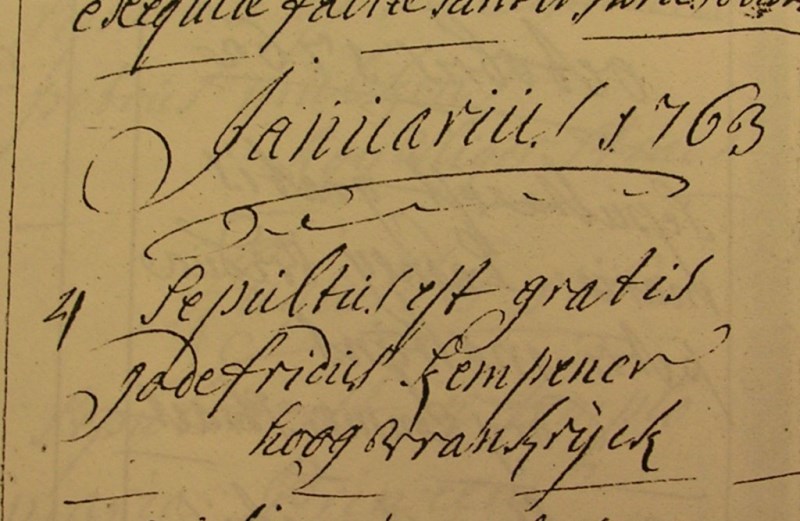 exequiae factae sunt
Januarius 1763
4 Sepultus est gratis
godefridus kempener
hoog vrankrijck